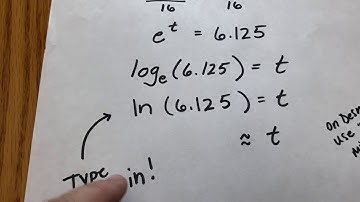 16 16
e^t = 6.125
log_e(6.125) = t
ln(6.125) = t
≈ t
TYPE in!
on Des
use